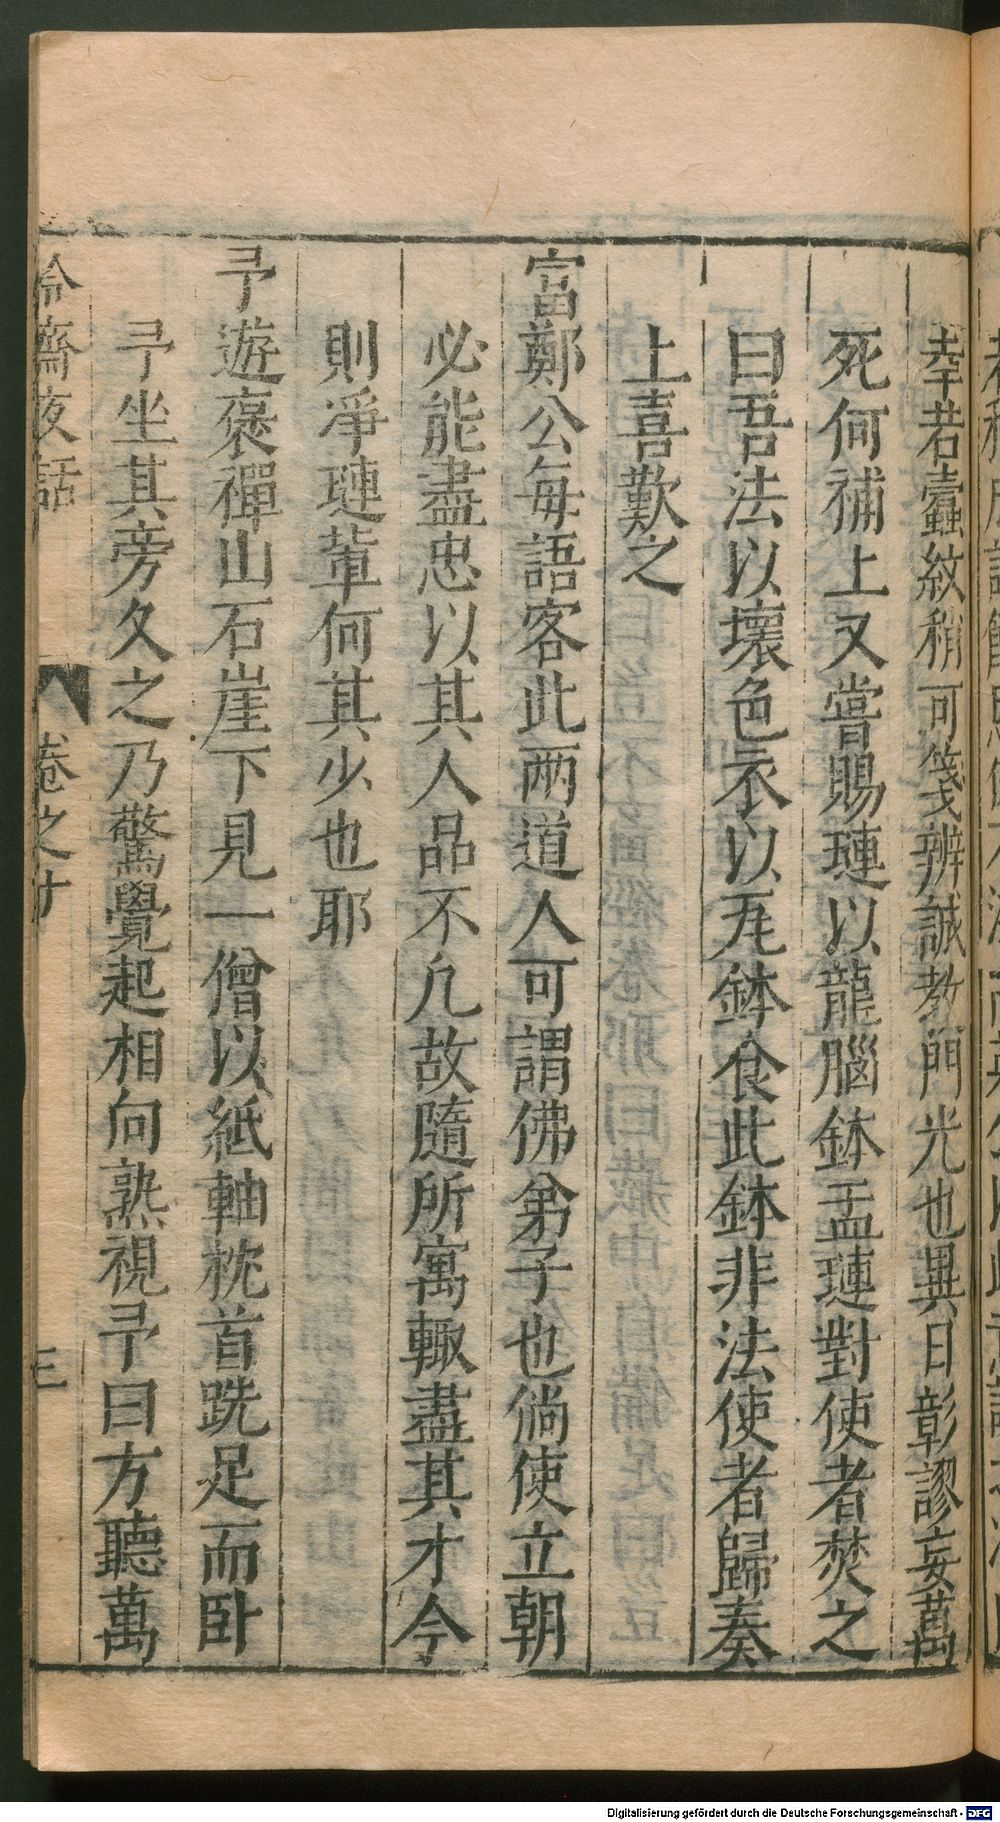 幸若蠹紋稍可箋辨誠教門光也異日彰謬妄萬
死何補上又嘗賜璉以龍腦鉢盂璉對使者焚之
曰吾法以壞色衣以瓦鉢食此鉢非法使者歸奏
上喜歎之
富鄭公每語客此两道人可謂佛弟子也倘使立朝
必能盡忠以其人品不凡故隨所寓輙盡其才今
則淨璉輩何其少也耶
予遊褒禪山石崖下見一僧以紙軸枕首跣足而卧
予坐其旁久之乃驚覺起相向熟視予曰方聽萬
冷齋夜話 卷之十 三
Digitalisierung gefördert durch die Deutsche Forschungsgemeinschaft - DFG